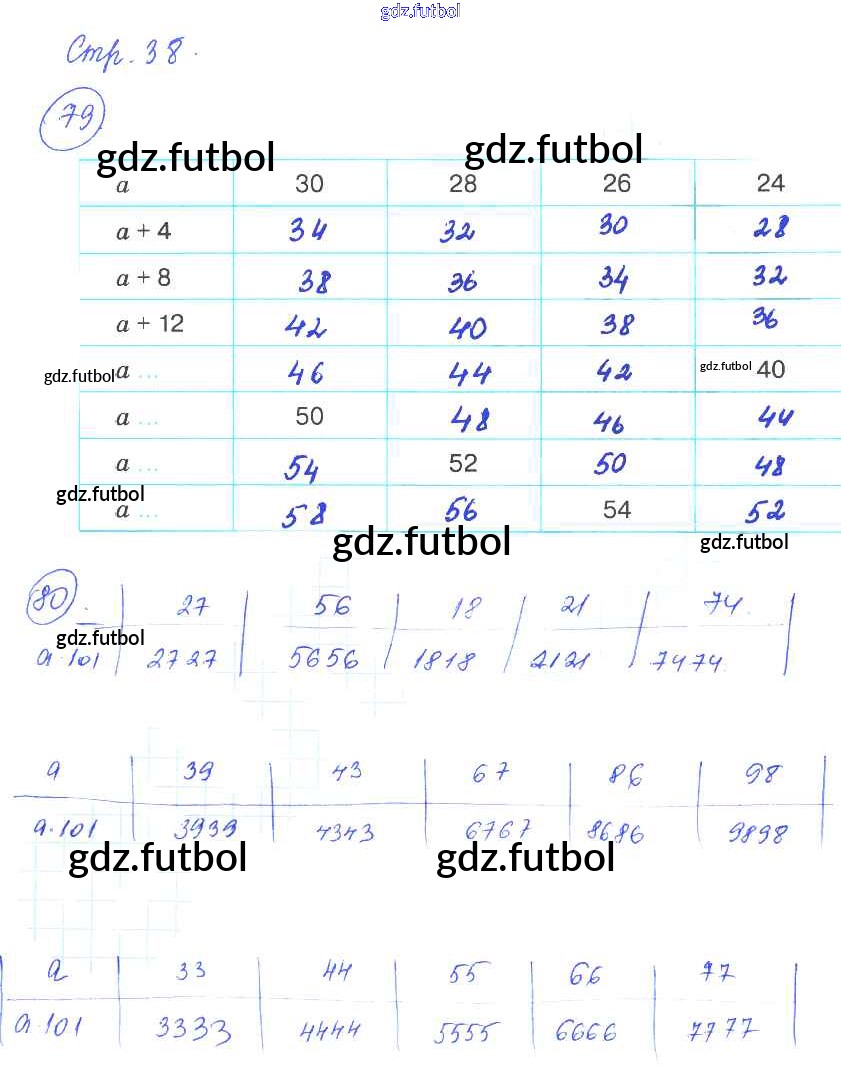 gdz.futbol
Стр. 38.
79
gdz.futbol gdz.futbol
a 30 28 26 24
a + 4 34 32 30 28
a + 8 38 36 34 32
a + 12 42 40 38 36
gdz.futbol a ... 46 44 42 gdz.futbol 40
a ... 50 48 46 44
a ... 54 52 50 48
gdz.futbol
a ... 58 56 54 52
gdz.futbol gdz.futbol
80. 27 56 18 21 74.
gdz.futbol
a·101 2727 5656 1818 2121 7474.
a 39 43 67 86 98
a·101 3939 4343 6767 8686 9898
gdz.futbol gdz.futbol
a 33 44 55 66 77
a·101 3333 4444 5555 6666 7777